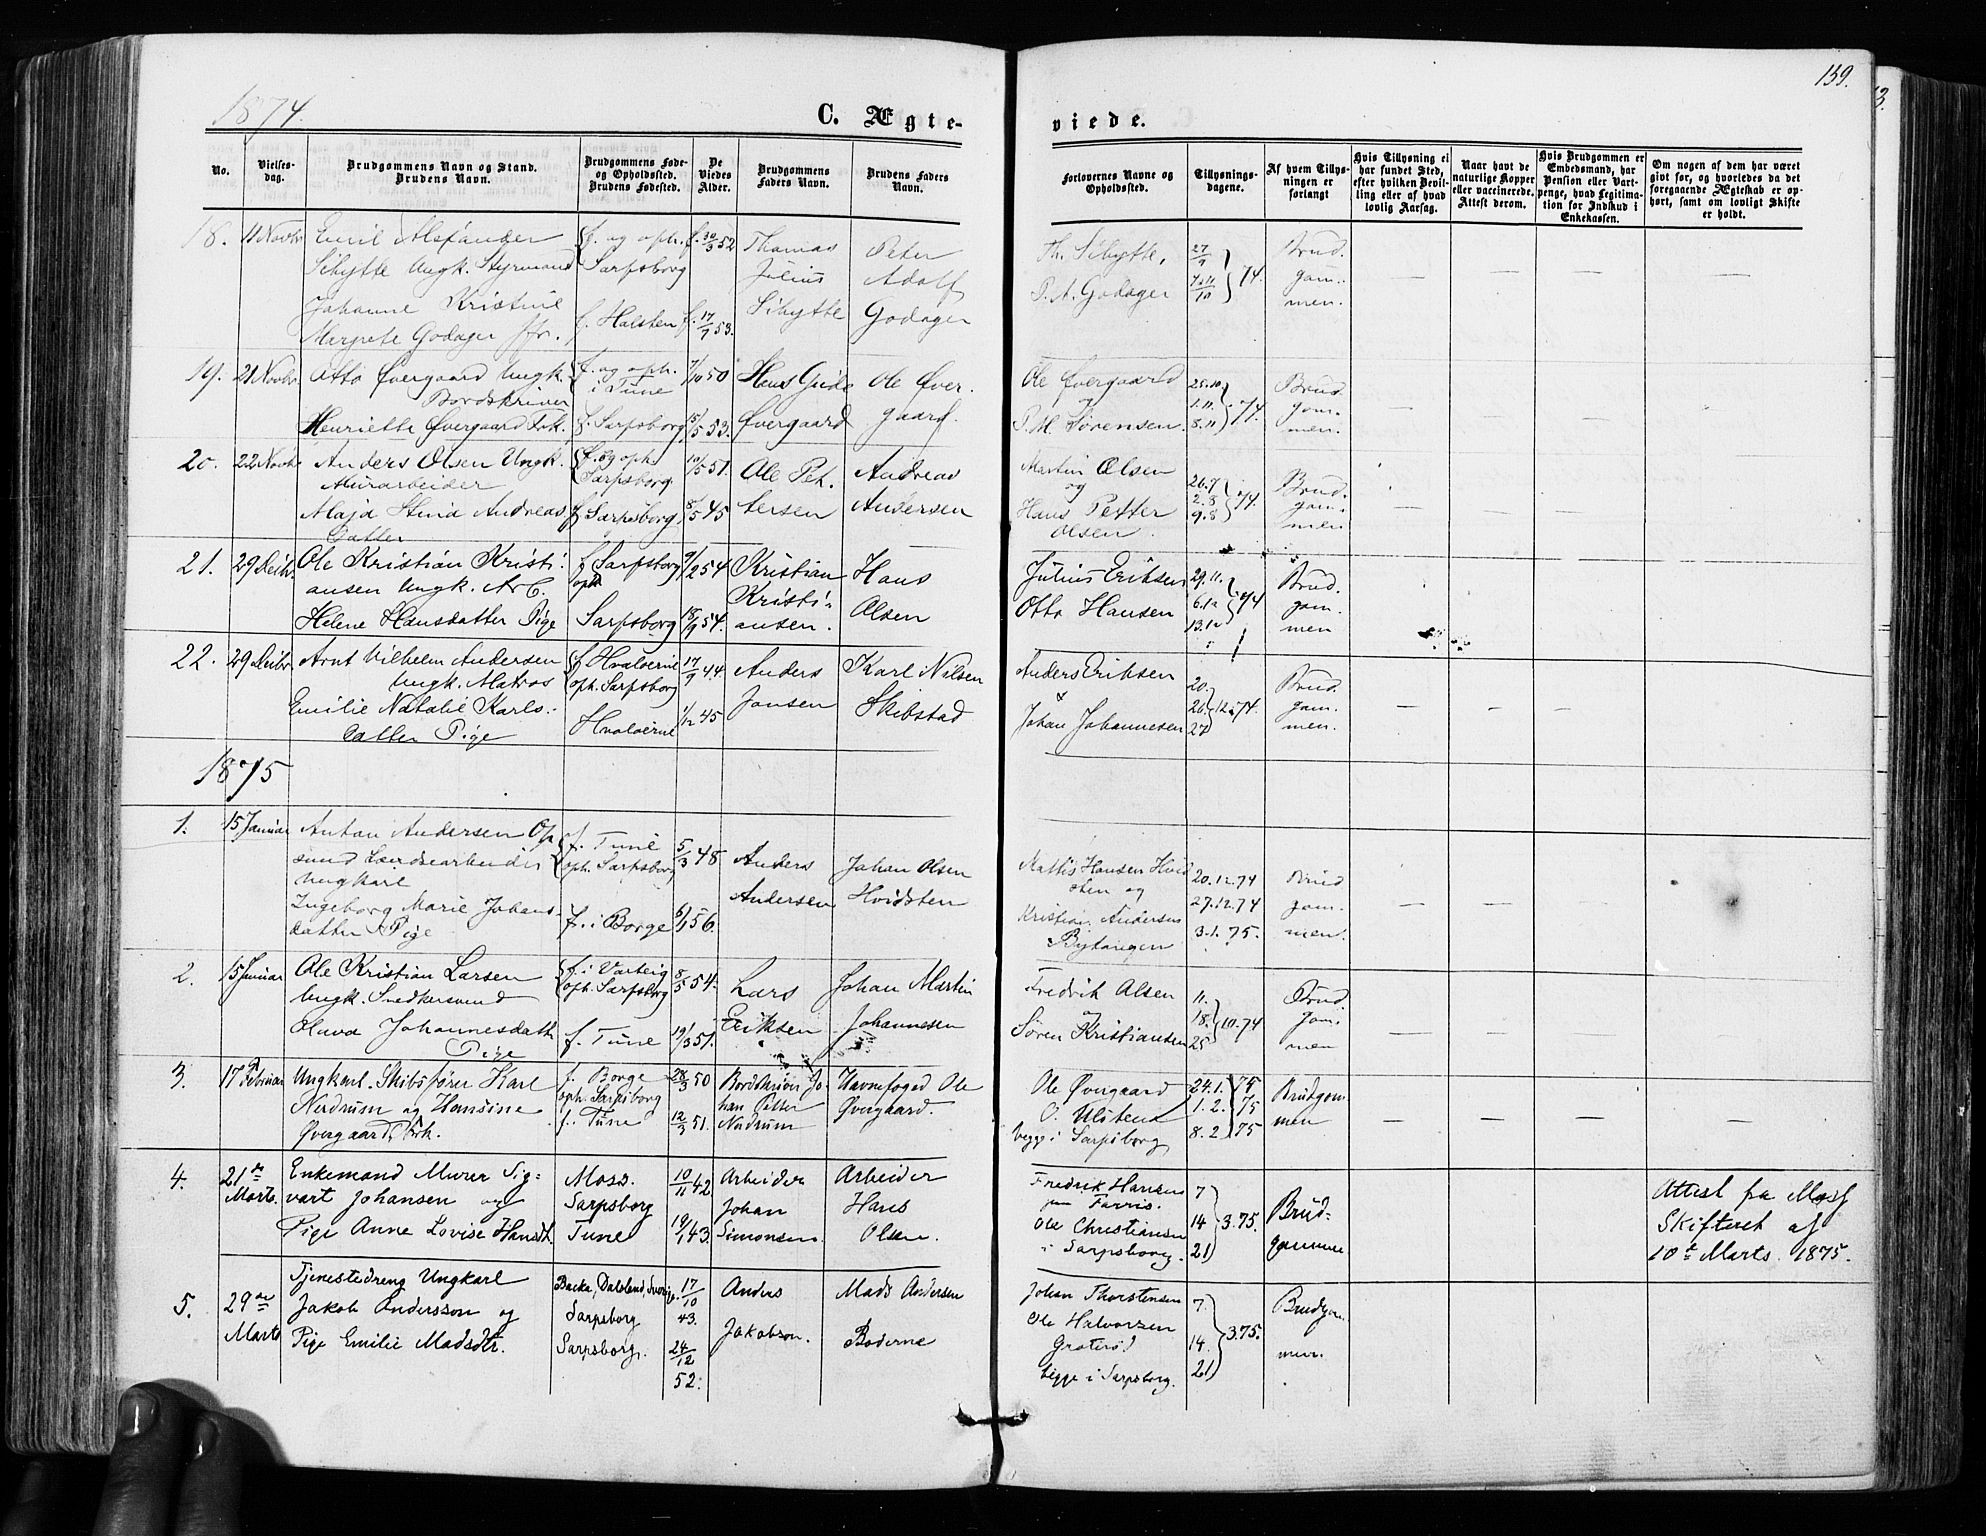 1874.
C. Ægte-
viede.
139.
3.
No.
Vielses-
dag.
Brudgommens Navn og Stand.
Brudens Navn.
Brudgommens Føde-
og Opholdssted.
Brudens Fødested.
De
Viedes
Alder.
Brudgommens
Faders Navn.
Brudens Faders
Navn.
Forlovernes Navne og
Opholdssted.
Tillysnings-
dagene.
Af hvem Tillys-
ningen er
forlangt
Hvis Tillysning ei
har fundet Sted,
efter hvilken Bevil-
ling eller af hvad
lovlig Aarsag.
Naar havt de
naturlige Kopper
eller vaccinerede.
Attest derom.
Hvis Brudgommen er
Embedsmand, har
Pension eller Vart-
penge, hvad Legitima-
tion for Indskud i
Enkekassen.
Om nogen af dem har været
givt før, og hvorledes da det
foregaaende Ægteskab er op-
hørt, samt om lovligt Skifte
er holdt.
18. 11 Novbr
Emil
Ungk. Styrmand
Johanne Kristine
Margrete Godager
f. og oph.
Sarpsborg
f. Halsten
f. 30/3 52
f. 17/9 53.
Thomas
Julius
Peter
Adolf
Godager
P. A. Godager
27/9
74.
Brud.
gom-
men.
19. 21 Novbr
Otto Øvergaard Ungk.
Bordskriver
Henriette Øvergaard Frk.
f. og oph.
i Tune
f. Sarpsborg
7/10 50
15/5 53.
Hans Gude
Øvergaard
Ole Øver.
gaard.
Ole Øvergaard
og
P. M. Sørensen.
25.10
1.11.
8.11
74.
Brud.
gom-
men.
20. 22 Novbr
Anders Olsen Ungk.
Murarbeider
Maja Stina Andreas
datter
f. og oph.
Sarpsborg
f. Sarpsborg
10/5 51.
8/5 45
Ole Pet.
tersen
Andreas
Andersen
Martin Olsen
og
Hans Petter
Olsen.
26.7
2.8
9.8
74.
Brud.
gom-
men
21. 29 Decbr.
Ole Kristian Kristi-
ansen Ungk. Arb.
Helene Hansdatter Pige
f. Sarpsborg
oph
Sarpsborg
9/2 54
18/9 54.
Kristian
Kristi-
ansen.
Hans
Olsen
Julius Eriksen
Otto Hansen
29.11.
6.12
13.12
74
Brud.
gom
men
22. 29 Decbr.
Arnt Vilhelm Andersen
Ungk. Matros
Emilie Natalie Karls-
datter Pige
f. Hvaløerne
oph. Sarpsborg
Hvaløerne
17/9 44.
1/12 45
Anders
Jansen
Karl Nilsen
Skibstad
Anders Eriksen
&
Johan Johannesen
20.
26.
27
12.74.
Brud.
gom-
men.
1875
1. 15 Januar
Anton Andersen Op
sund
Ungkarl
Ingeborg Marie Johans-
datter Pige
f. Tune
oph. Sarpsborg
f. i Borge
5/3 48
6/1 56.
Anders
Andersen
Johan Olsen
Hvidsten
Mattis Hansen Hvid
sten og
Kristian Andersen
Bytangen
20.12.74
27.12.74
3.1.75.
Brud
gom-
men.
2. 15 Januar
Ole Kristian Larsen
Ungk. Snedkersvend
Oluva Johannesdatt.
Pige
f. i Varteig
oph. Sarpsborg
f. Tune
8/5 54.
19/3 51.
Lars
Eriksen
Johan Martin
Johannesen
Fredrik Olsen
og
Søren Kristiansen
11.
18.
25
10.74
Brud
gom-
men
3. 17 Februar
Ungkarl. Skibsfører Karl
Nerdrum og Hansine
Øvergaard, Frk.
f. Borge
oph. Sarpsborg
f. Tune
28/3 50
12/3 51.
Bordskriver Jo-
han Petter
Nerdrum
Havnefoged Ole
Øvergaard.
Ole Øvergaard
O. Ulstena
begge i Sarpsborg
24.1.75
1.2.75
8.2.75
Brudgom
men
4. 21de
Marts.
Enkemand Murer Sig-
vart Johansen og
Pige Anne Lovise Hansdt.
Moss.
Sarpsborg
Tune
10/11 42
19/1 43.
Arbeider
Johan
Simonsen.
Arbeider
Hans
Olsen.
Fredrik Hansen
Farris.
Ole Christiansen
i Sarpsborg.
7
14
21
3.75.
Brud-
gommen
Attest fra Moss
Skifteret af
10de Marts 1875.
5. 29de
Marts
Tjenestedreng Ungkarl
Jakob Andersson og
Pige Emilie Madsdtr.
Backa, Dalsland, Sverige.
Sarpsborg
Sarpsborg.
17/10
43.
24/12
52.
Anders
Jakobson.
Mads Andersen
Boderne
Johan Thorstensen
Ole Halvorsen
Graterød
begge i Sarpsborg.
7.
14.
21
3.75.
Brudgom
men.